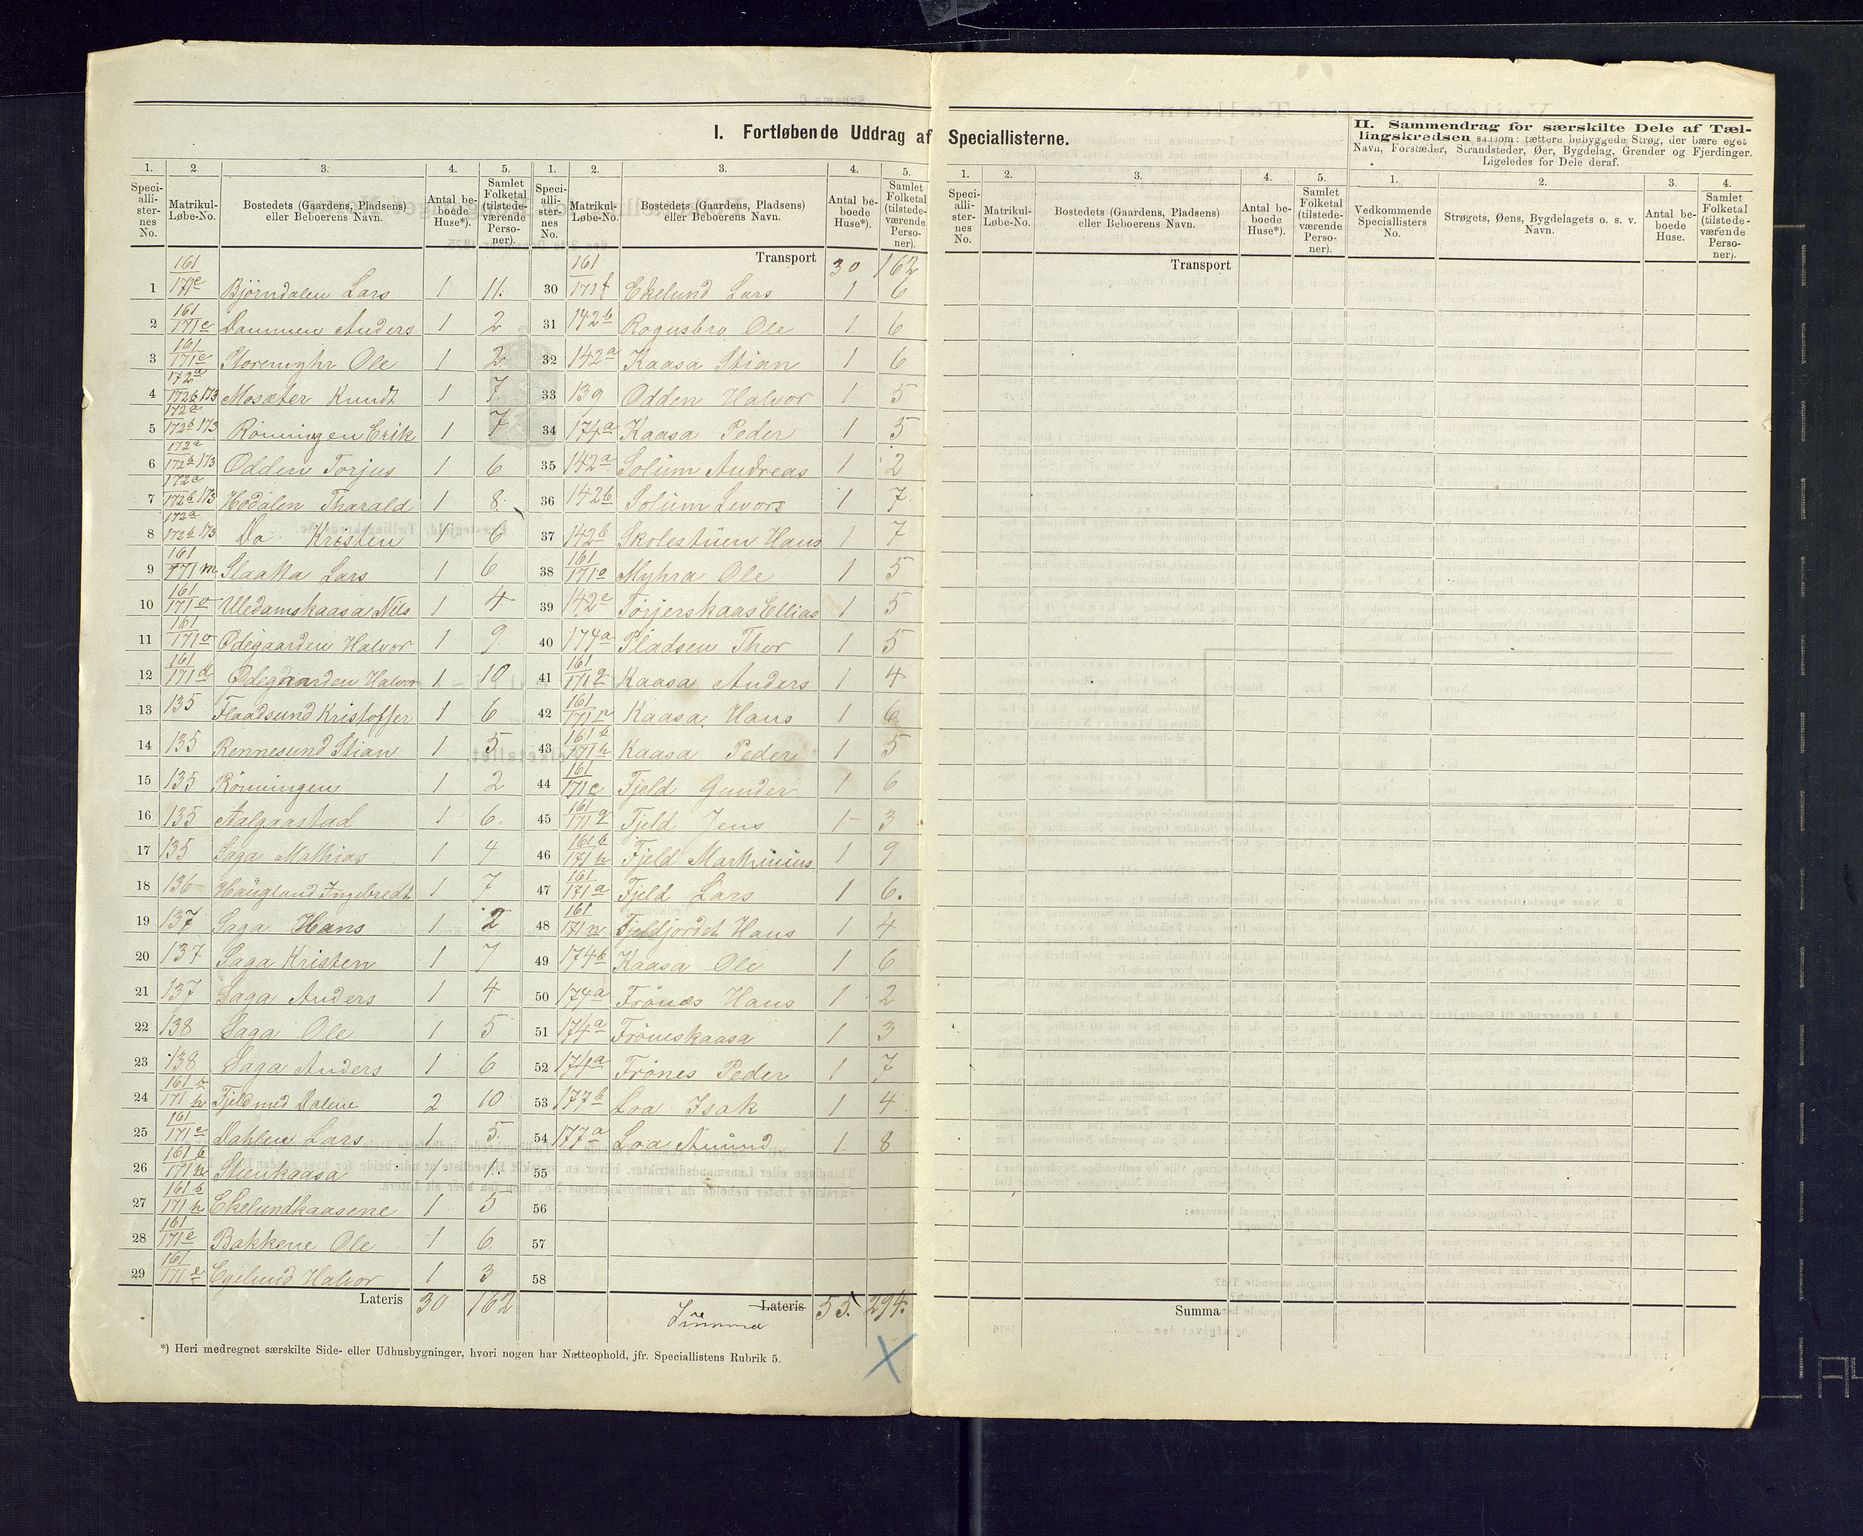 I. Fortløbende Uddrag af Speciallisterne.
II. Sammendrag for særskilte Dele af Tællingskredsen saasom: tættere bebyggede Strøg, der bære eget
Navn, Forstæder, Strandsteder, Øer, Bygdelag, Grender og Fjerdinger.
Ligeledes for Dele deraf.
1. 2. 3. 4. 5. 1. 2. 3. 4. 5. 1. 2. 3. 4. 5. 1. 2. 3. 4.
Speciallisternes No. Matrikul-Løbe-No. Bostedets (Gaardens, Pladsens) eller Beboerens Navn. Antal beboede Huse*). Samlet Folketal (tilstedeværende Personer).
Speciallisternes No. Matrikul-Løbe-No. Bostedets (Gaardens, Pladsens) eller Beboerens Navn. Antal beboede Huse*). Samlet Folketal (tilstedeværende Personer).
Speciallisternes No. Matrikul-Løbe-No. Bostedets (Gaardens, Pladsens) eller Beboerens Navn. Antal beboede Huse*). Samlet Folketal (tilstedeværende Personer).
Vedkommende Speciallisters No. Strøgets, Øens, Bygdelagets o. s. v. Navn. Antal beboede Huse. Samlet Folketal (tilstedeværende Personer).
1 161/171e Bjørndalen Lars 1 11.
2 161/171e Dammen Anders 1 2
3 161/171e Storemyhr Ole 1 2
4 172a/172b 173 Mosæter Knudt 1 7.
5 172a/172b 173 Rönningen Erik 1 7
6 172a/172b 173 Odden Torjus 1 6
7 172a/172b 173 Hodalen Tharald 1 8
8 172a/172b 173 Do Kristen 1 6
9 161/171m Slaatta Lars 1 6
10 161/171o Uledamskaasa Nils 1 4
11 161/171o Ödegaarden Halvor 1 9.
12 161/171d Ödegaarden Halvor 1 10
13 135 Flaadsund Kristoffer 1 6
14 135 Rennesund Stian 1 5
15 135 Rönningen 1 2
16 135 Aalgaastad 1 6.
17 135 Saga Mathias 1 4
18 136 Haugland Ingebredt 1 7
19 137 Saga Hans 1 2
20 137 Saga Kristen 1 7
21 137 Saga Anders 1 4
22 138 Saga Ole 1 5
23 138 Saga Anders 1 6
24 161b/171h Fjeld med Dalene 2 10
25 161/171e Dahlen Lars 1 5.
26 161b/171n Stenkaasa 1 1.
27 161b/171h Ekelundkaasene 1 5
28 161/171e Bakkene Ole 1 6.
29 161/171e Egelund Halvor 1 3
Lateris 30 162
Transport 30 162
30 161/171f Ekelund Lars 1 6
31 142b Rognsbro Ole 1 6
32 142a Kaasa Stian 1 6
33 139 Odden Halvor 1 5
34 174a Kaasa Peder 1 5
35 142a Solum Andreas 1 2
36 142b Solum Levors 1 7
37 142b Skolestuen Hans 1 7
38 161/171a Myhra Ole 1 5
39 142c Torjerskaas Ellias 1 5
40 174a Pladsen Thor 1 5
41 161/171q Kaasa Anders 1 4
42 161/171n Kaasa Hans 1 6
43 161b/171h Kaasa Peder 1 5
44 161/171c Fjeld Gunder 1 6
45 161/171q Fjeld Jens 1 3
46 161b/171h Fjeld Marthinius 1 9
47 161/171a Fjeld Lars 1 6.
48 161/171n Fjeldjordet Hans 1 4
49 174b Kaasa Ole 1 6
50 174a Frönæs Hans 1 2
51 174a Fröneskaasa 1 3
52 174a Frönes Peder 1 7
53 177b Loa Isak 1 4
54 177a Loa Amund 1 8
55
56
57
58
Lateris 55. 294.
Summa
Transport
Summa
*) Heri medregnet særskilte Side- eller Udhusbygninger, hvori nogen har Natteophold, jfr. Speciallistens Rubrik 5.